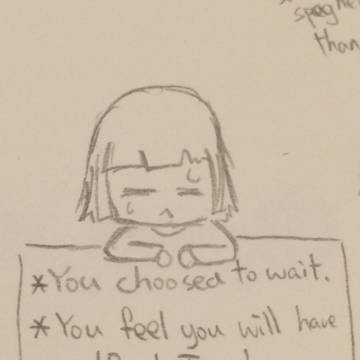 than
*You choosed to wait.
*You feel you will have